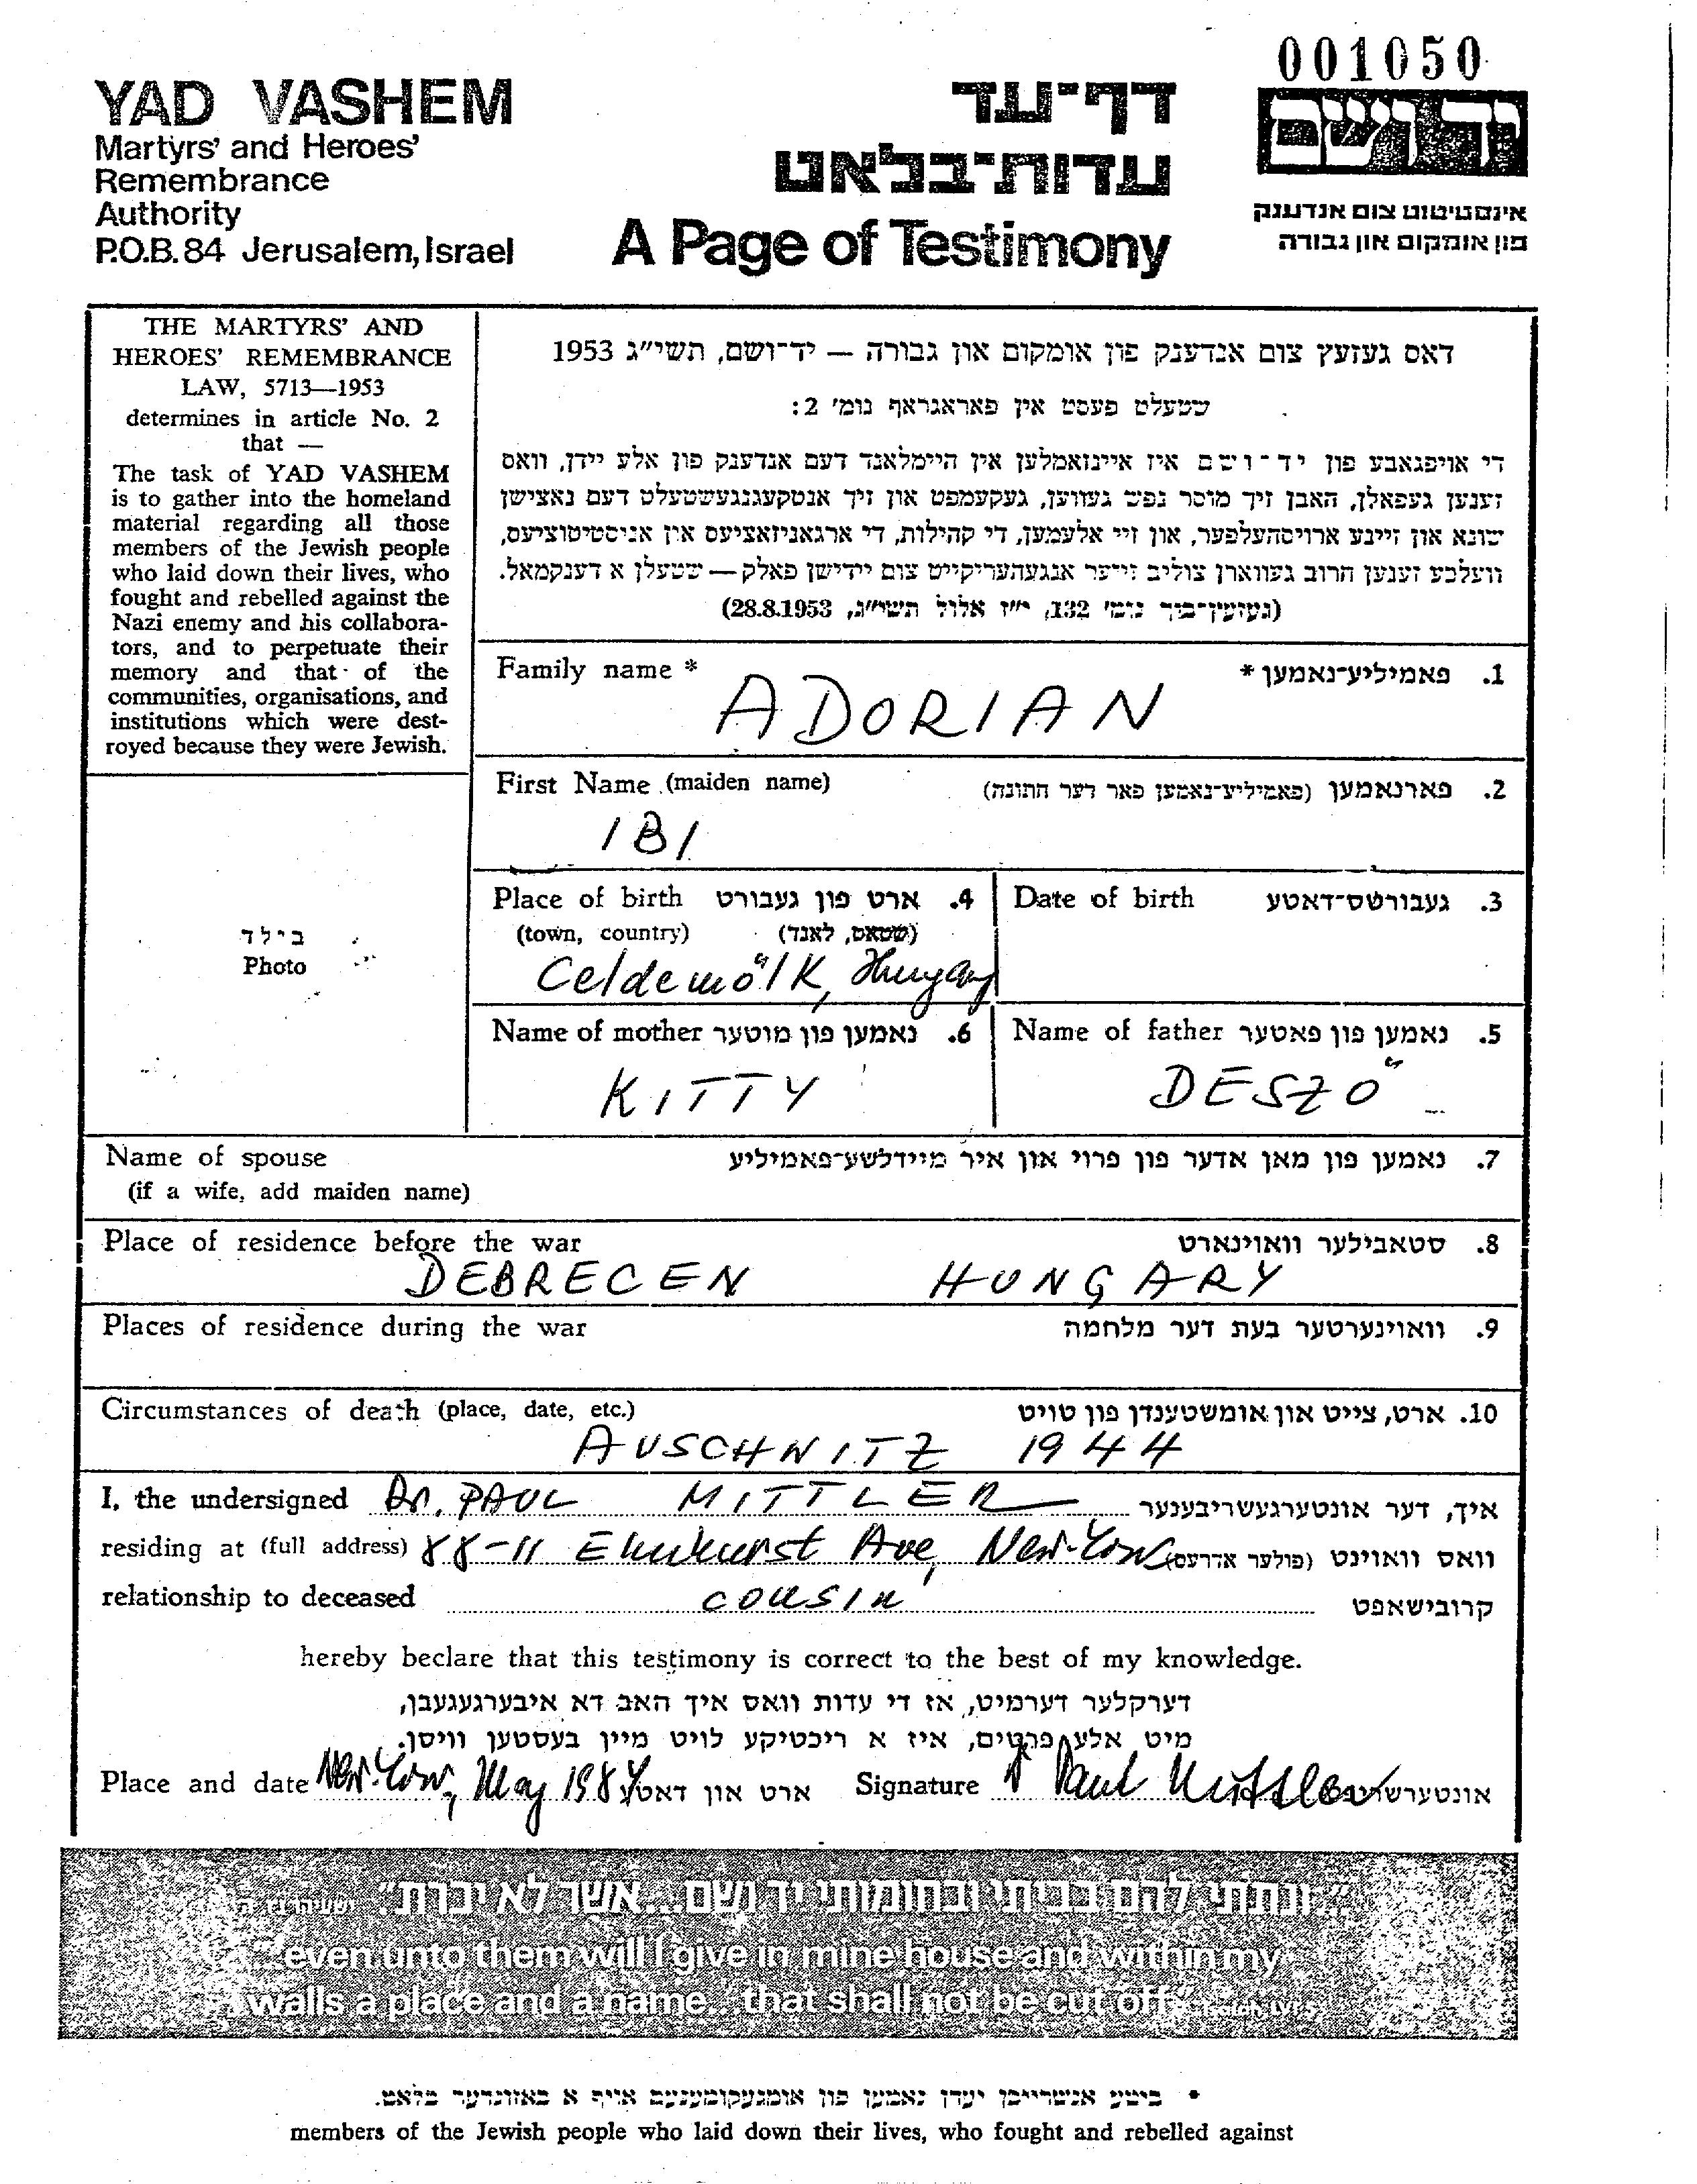 001050
YAD VASHEM
Martyrs' and Heroes'
Remembrance
Authority
P.O.B. 84 Jerusalem, Israel
דף־עד
עדות־בלאט
A Page of Testimony
יד ושם
אינסטיטוט צום אנדענק
פון אומקום און גבורה
THE MARTYRS' AND
HEROES' REMEMBRANCE
LAW, 5713—1953
determines in article No. 2
that —
The task of YAD VASHEM
is to gather into the homeland
material regarding all those
members of the Jewish people
who laid down their lives, who
fought and rebelled against the
Nazi enemy and his collabora-
tors, and to perpetuate their
memory and that of the
communities, organisations, and
institutions which were dest-
royed because they were Jewish.
דאס געזעץ צום אנדענק פון אומקום און גבורה — יד־ושם, תשי"ג 1953
שטעלט פעסט אין פאראגראף נומ' 2:
די אויפגאבע פון יד־ושם איז איינזאמלען אין היימלאנד דעם אנדענק פון אלע יידן, וואס
זענען געפאלן, האבן זיך מוסר נפש געווען, געקעמפט און זיך אנטקעגנגעשטעלט דעם נאצישן
שונא און זיינע ארויסהעלפער, און זיי אלעמען, די קהילות, די ארגאניזאציעס און אינסטיטוציעס,
וועלכע זענען חרוב געווארן צוליב זייער אנגעהעריקייט צום יידישן פאלק — שטעלן א דענקמאל.
(געזעץ־בוך נומ' 132, י"ז אלול תשי"ג, 28.8.1953)
Family name * פאמיליע־נאמען * .1
ADORIAN
First Name (maiden name) פארנאמען (פאמיליע־נאמען פאר דער חתונה) .2
IBI
Place of birth ארט פון געבורט .4
(town, country) (שטאט, לאנד)
Celdemőlk, Hungary
Date of birth געבורטס־דאטע .3
Name of mother נאמען פון מוטער .6
KITTY
Name of father נאמען פון פאטער .5
DESZŐ
בילד
Photo
Name of spouse נאמען פון מאן אדער פון פרוי און איר מיידלשע־פאמיליע .7
(if a wife, add maiden name)
Place of residence before the war סטאבילער וואוינארט .8
DEBRECEN HUNGARY
Places of residence during the war וואוינערטער בעת דער מלחמה .9
Circumstances of death (place, date, etc.) ארט, צייט און אומשטענדן פון טויט .10
AUSCHWITZ 1944
I, the undersigned DR. PAUL MITTLER איך, דער אונטערגעשריבענער
residing at (full address) 88-11 Elmhurst Ave, New-York וואס וואוינט (פולער אדרעס)
relationship to deceased cousin קרובישאפט
hereby beclare that this testimony is correct to the best of my knowledge.
דערקלער דערמיט, אז די עדות וואס איך האב דא איבערגעגעבן,
מיט אלע פרטים, איז א ריכטיקע לויט מיין בעסטען וויסן.
Place and date New-York, May 1984 ארט און דאטע Signature Paul Mittler
"ונתתי להם בביתי ובחומותי יד ושם...אשר לא יכרת"
"...even unto them will I give in mine house and within my
walls a place and a name...that shall not be cut off" Isaiah, LVI 5
* ביטע אנשרייבן יעדן נאמען פון אומגעקומענעם אויף א באזונדער בלאט.
members of the Jewish people who laid down their lives, who fought and rebelled against